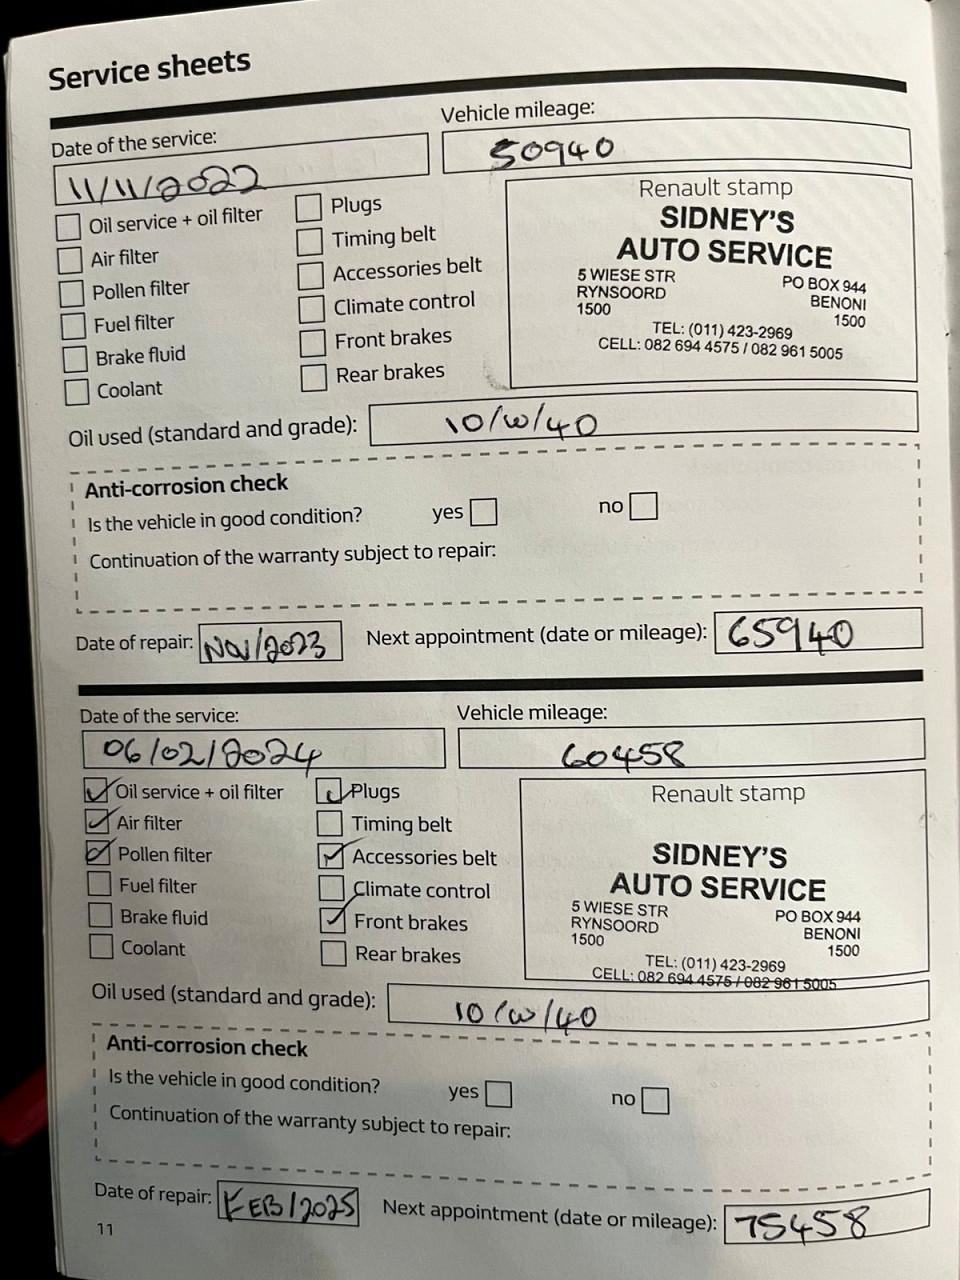 Service sheets
Date of the service: Vehicle mileage:
11/11/2022 50940
Oil service + oil filter Plugs
Air filter Timing belt
Pollen filter Accessories belt
Fuel filter Climate control
Brake fluid Front brakes
Coolant Rear brakes
Renault stamp
SIDNEY'S
AUTO SERVICE
5 WIESE STR PO BOX 944
RYNSOORD BENONI
1500 1500
TEL: (011) 423-2969
CELL: 082 694 4575 / 082 961 5005
Oil used (standard and grade): 10/W/40
Anti-corrosion check
Is the vehicle in good condition? yes no
Continuation of the warranty subject to repair:
Date of repair: NOV/2023 Next appointment (date or mileage): 65940
Date of the service: Vehicle mileage:
06/02/2024 60458
Oil service + oil filter Plugs
Air filter Timing belt
Pollen filter Accessories belt
Fuel filter Climate control
Brake fluid Front brakes
Coolant Rear brakes
Renault stamp
SIDNEY'S
AUTO SERVICE
5 WIESE STR PO BOX 944
RYNSOORD BENONI
1500 1500
TEL: (011) 423-2969
CELL: 082 694 4575 / 082 961 5005
Oil used (standard and grade): 10/W/40
Anti-corrosion check
Is the vehicle in good condition? yes no
Continuation of the warranty subject to repair:
Date of repair: FEB/2025 Next appointment (date or mileage): 75458
11